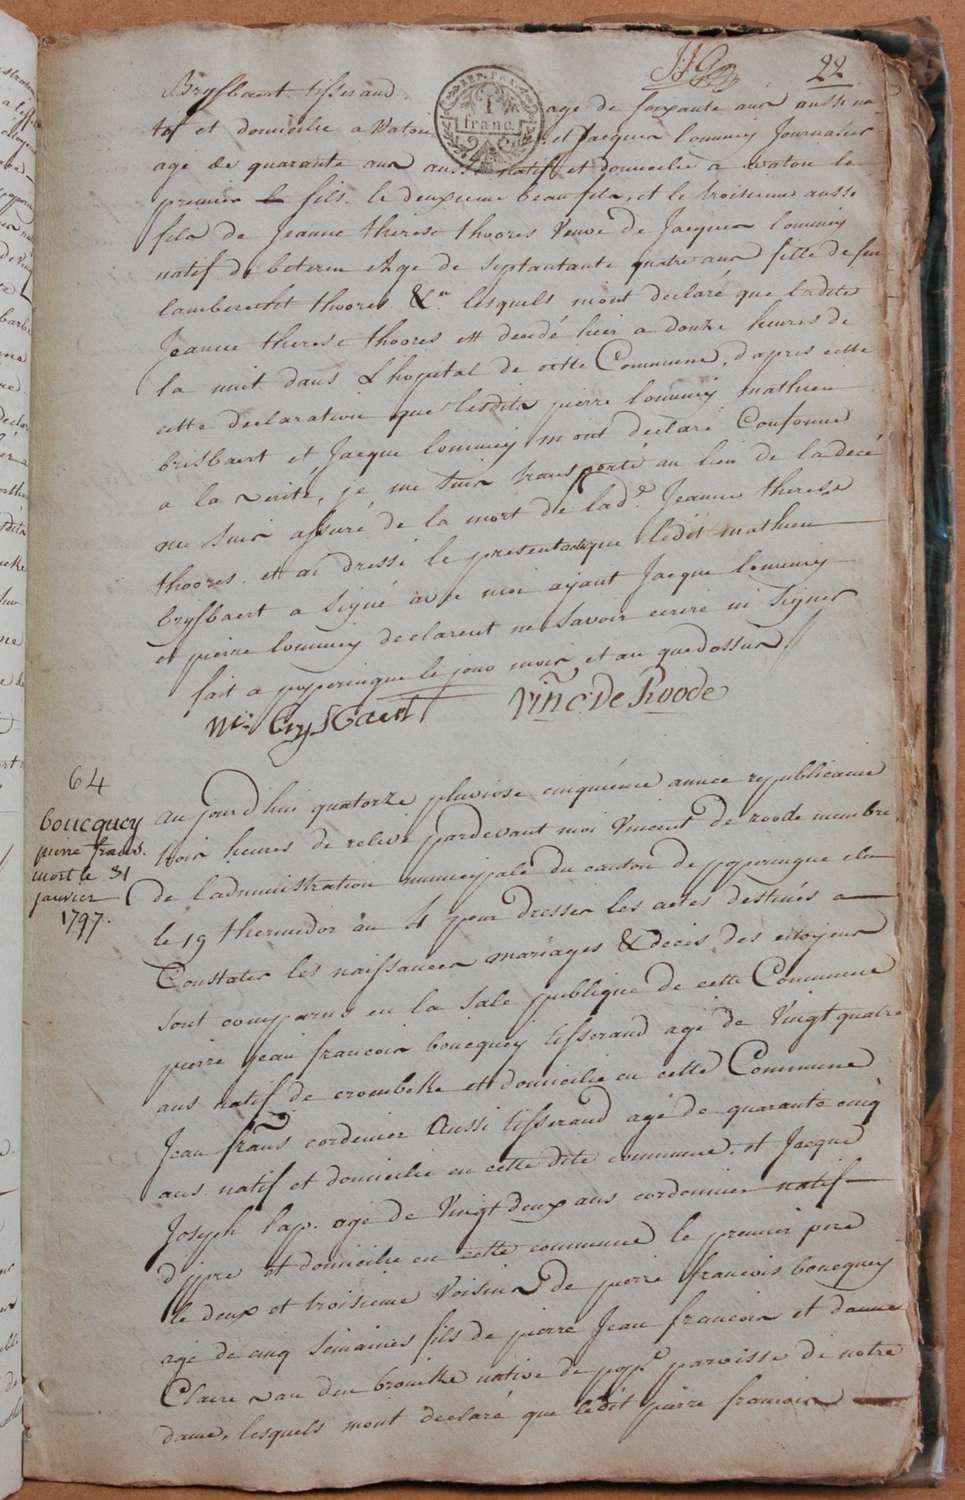 22
Brysbaert tisserand age de soixante ans aussi na
tif et domicilie a Watou et Jacques lommey Journalier
age de quarante ans aussi natif et domicilie a watou le
premier le fils, le deuxieme beau fils, et le troisieme aussi
fils de Jeanne therese thoores Veuve de Jacques lommey
natif de Age de septantante quatre ans fille de feu
lamberecht thoores &a lesquels mont declaré que ladite
Jeanne therese thoores est decedé hier a douze heures de
la nuit dans L'hopital de cette Commune, d'apres cette
cette declaration que lesdits pierre lommey mathieu
brisbaert et Jacque lommey mont declaré Conforme
a la verité, je me suis transporté au lieu de la decé
me suis assuré de la mort de lade Jeanne therese
thoores. et ai dressé le present acte que ledit mathieu
brysbaert a signé avec moi ayant Jacque lommey
et pierre lommey declarent ne savoir ecrire ni signer
fait a poperingue le jour mois et an que dessus
Mu. brysbaert Vinc. De Roode
REP. FRA.
1
franc.
64
boucquey
pierre frans.
mort le 31
janvier
1797.
au jourd'hui quatorze pluviose cinquieme année republicaine
trois heures de relevé pardevant moi Vincent de roode membre
de l'administration municipale du canton de poperingue elu
le 19 thermidor an 4 pour dresser les actes destinés a
Constater les naissances mariages & deces des citoyens
sont comparus en la sale publique de cette Commune
pierre jean francois boucquey tisserand agé de Vingt quatre
ans natif de crombeke et domicilie en cette Commune
Jean frans cordenier Aussi tisserand agé de quarante cinq
ans natif et domicilie en cette dite commune, et Jacque
Joseph lap. age de Vingt deux ans cordonnier natif
d'ipre et domicilie en cette commune le premier pere
le deux et troisieme Voisins de pierre francois boucquey
agé de cinq semaines fils de pierre Jean francois et danne
Claire van den brouke native de popce paroisse de notre
dame, lesquels mont declaré que ledit pierre francois